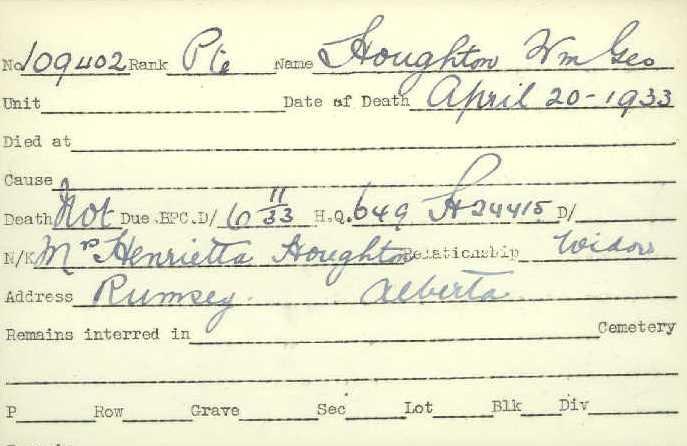 No 109402 Rank Pte Name Houghton Wm Geo
Unit Date of Death April 20-1933
Died at
Cause
Death Not Due .BPC.D/ 6 11/33 H.Q. 649 H 24415 D/
N/K Mrs Henrietta Houghton Relationship Widow
Address Rumsey. Alberta
Remains interred in Cemetery
P Row Grave Sec Lot Blk Div